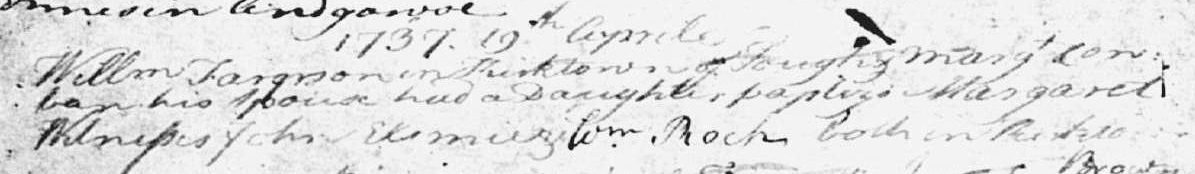 1737. 19th Aprile
Willm Fargrson in Kirktown of Tough & Mary Con:
ban his spouse had a Daughter baptizd Margaret
Witnesses John Elsmie & Wm. Roch both in Kirktown
Brown